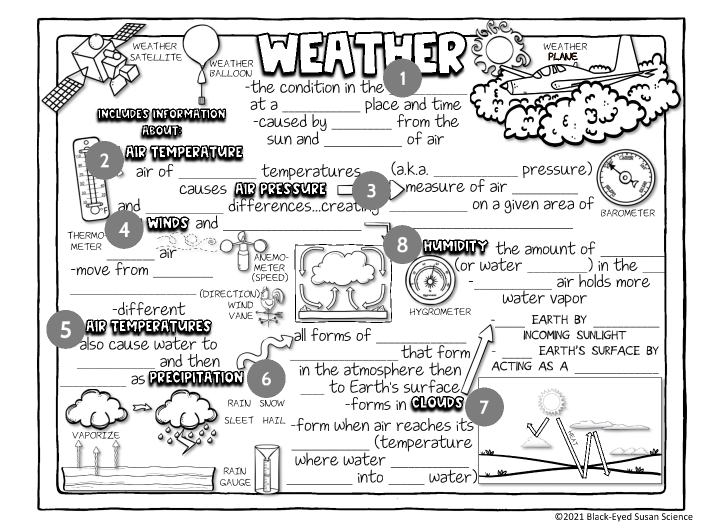 WEATHER
WEATHER SATELLITE
WEATHER BALLOON
WEATHER PLANE
-the condition in the 1 ________
at a ________ place and time
-caused by ________ from the
sun and ________ of air
INCLUDES INFORMATION
ABOUT:
2 AIR TEMPERATURE
air of ________ temperatures
causes AIR PRESSURE
and ________ differences...creating
THERMO-
METER
3 (a.k.a. ________ pressure)
measure of air ________
________ on a given area of
________
BAROMETER
4 WINDS and ________
________ air
-move from ________
________
ANEMO-
METER
(SPEED)
(DIRECTION)
WIND
VANE
-different
5 AIR TEMPERATURES
also cause water to
________ and then
________ as PRECIPITATION
VAPORIZE
6
all forms of ________
________ that form
in the atmosphere then
___ to Earth's surface
RAIN SNOW
SLEET HAIL
RAIN
GAUGE
-forms in CLOUDS 7
-form when air reaches its
________ (temperature
where water ________
________ into ____ water)
8 HUMIDITY the amount of ________
(or water ________) in the ___
-________ air holds more
water vapor
HYGROMETER
-____ EARTH BY ________
INCOMING SUNLIGHT
-____ EARTH'S SURFACE BY
ACTING AS A ________
HEAT
©2021 Black-Eyed Susan Science